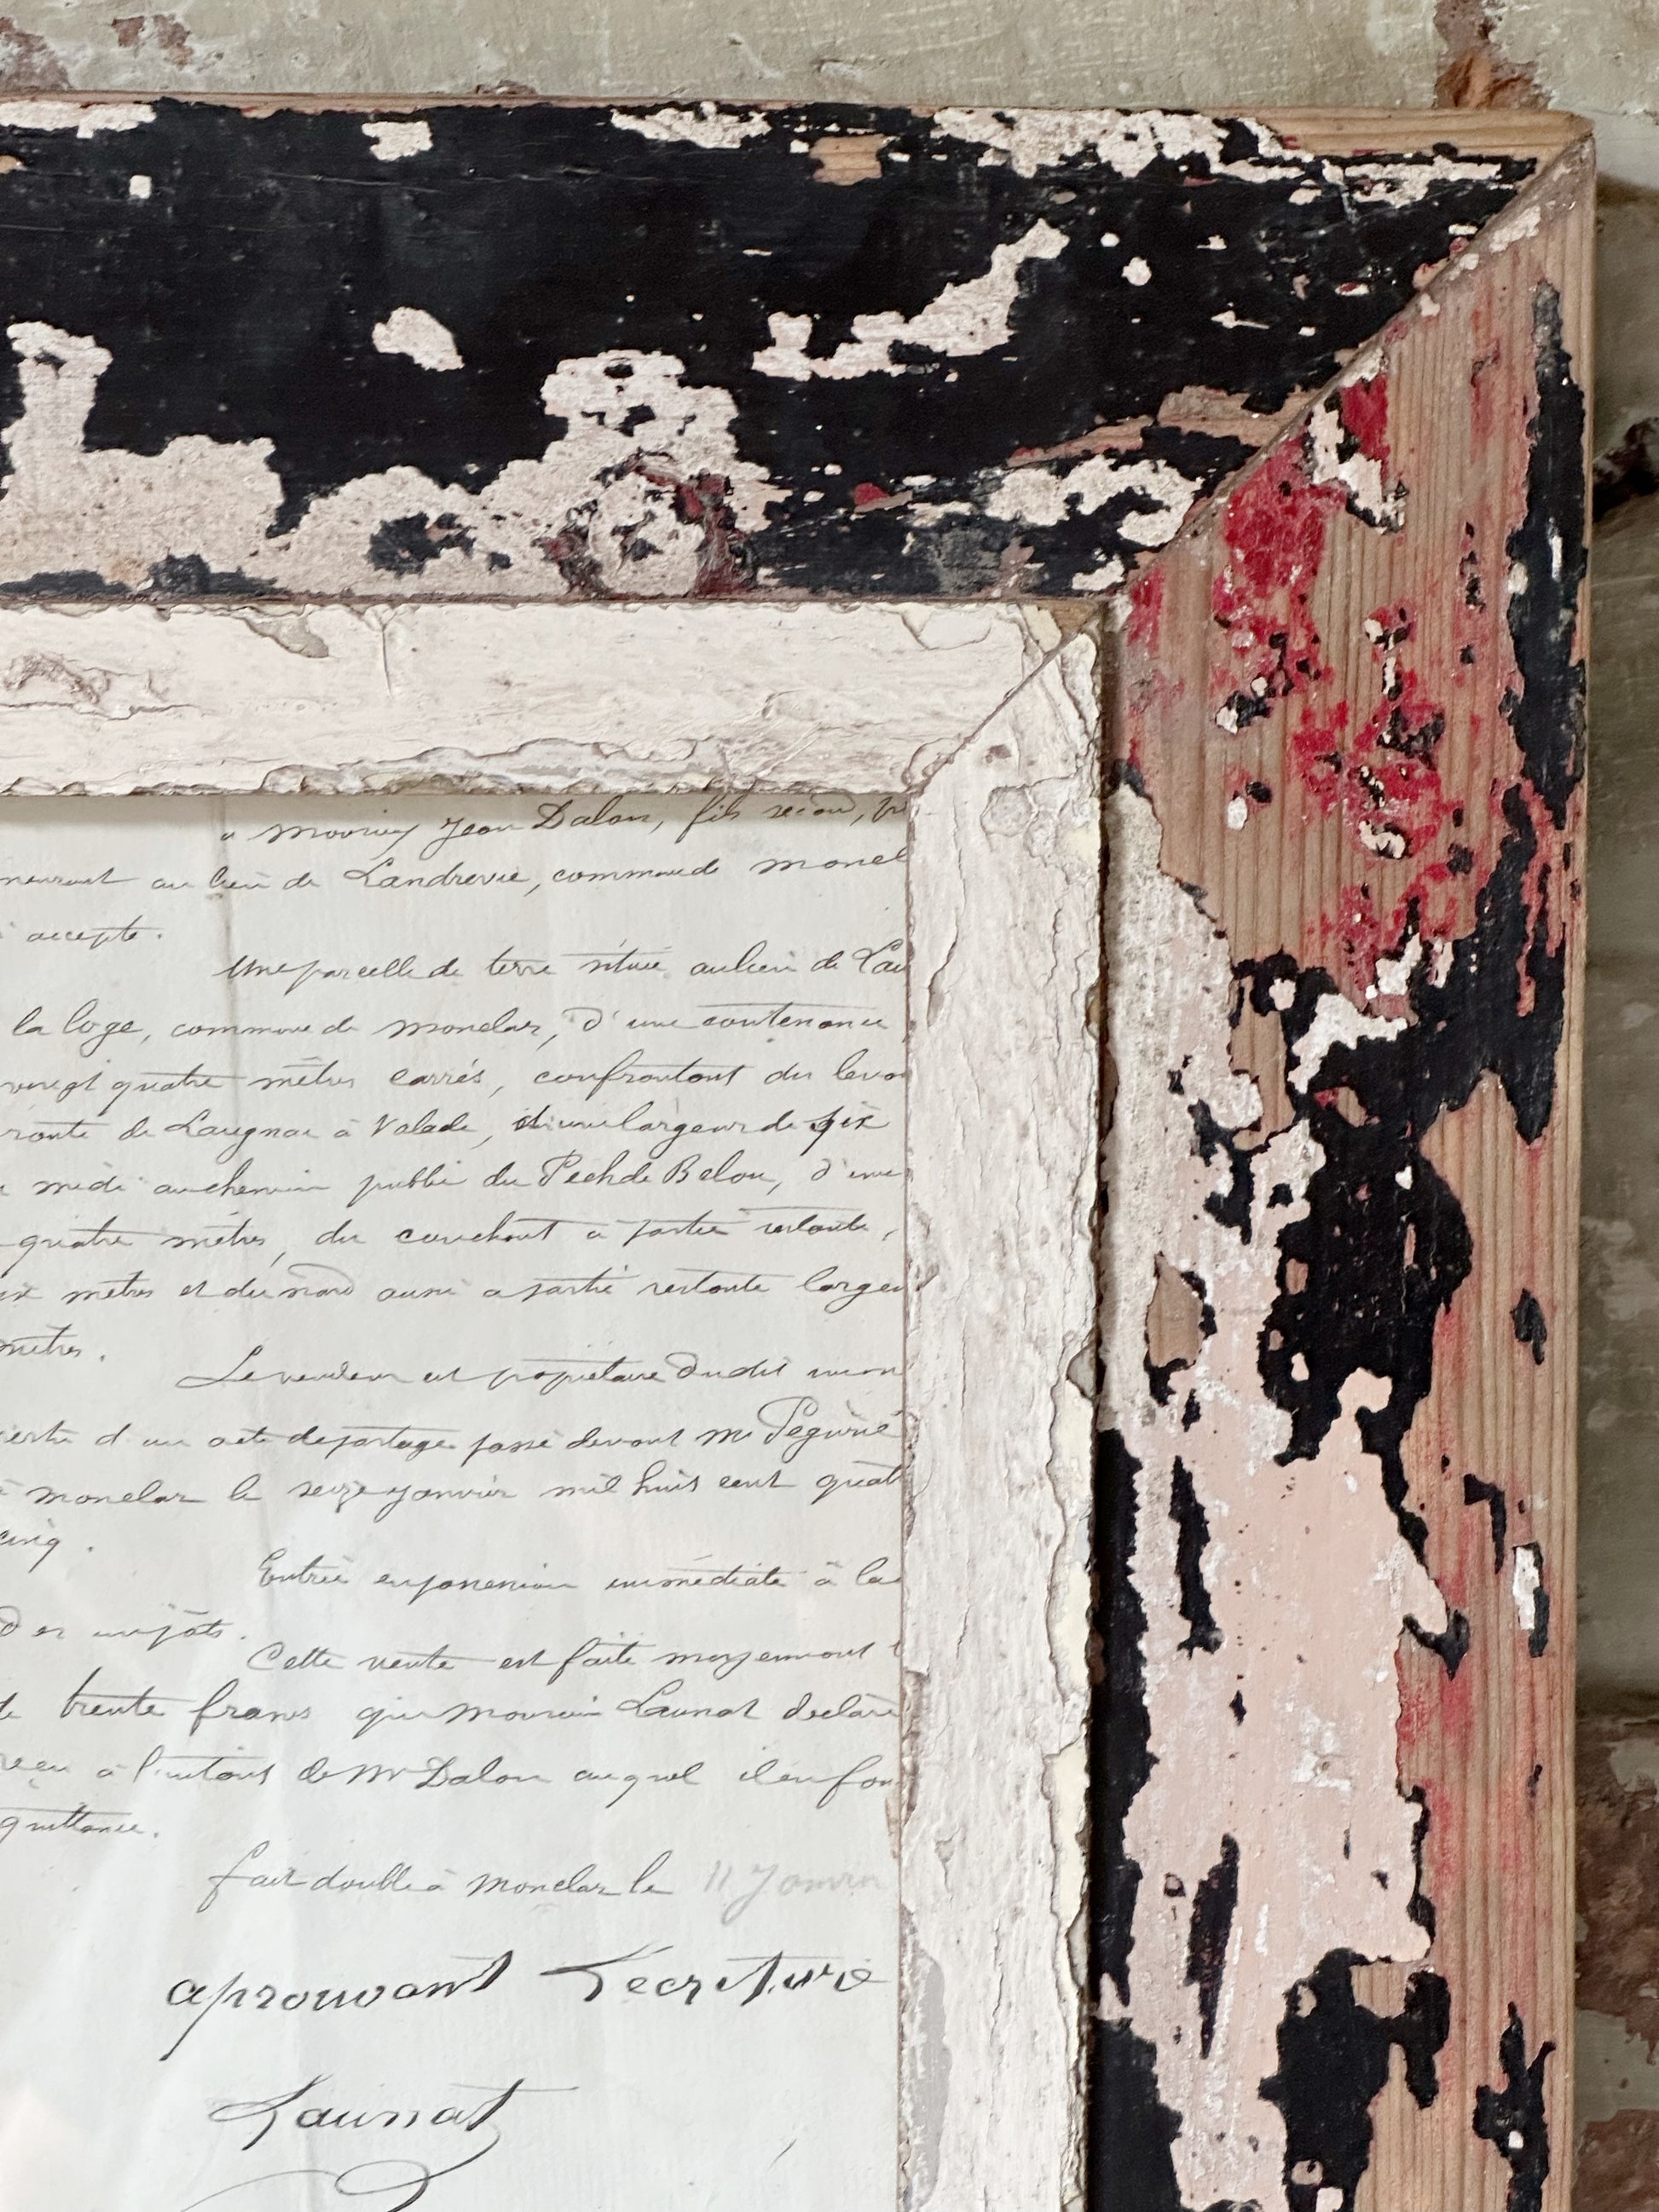 a Mourin Jean Dalon, fils second, pr
meurant au lieu de Landrevie, commune de Moncl
i accepte.
Une parcelle de terre située au lieu de Lau
la loge, commune de Monclar, d'une contenance
vingt quatre mètres carrés, confrontant du leva
route de Laugnac à Valade, d'une largeur de six
midi au chemin public du Pech de Belou, d'une
quatre mètres, du couchant a partie restante,
ix mètres et du nord aussi a partie restante largeu
mètres.
Le vendeur est propietaire dudit immon
d'un acte de partage passé devant Me
à Monclar le seize janvier mil huit cent quat
cinq.
Entrée en possession immédiate à la
d es impôts.
Cette vente est faite moyennant
trente francs que Launat déclare
reçu à l'instant de Mr Dalon auquel il en fon
quittance.
fait double à Monclar le 11 Janvier
aprouvant Lecriture
Launat